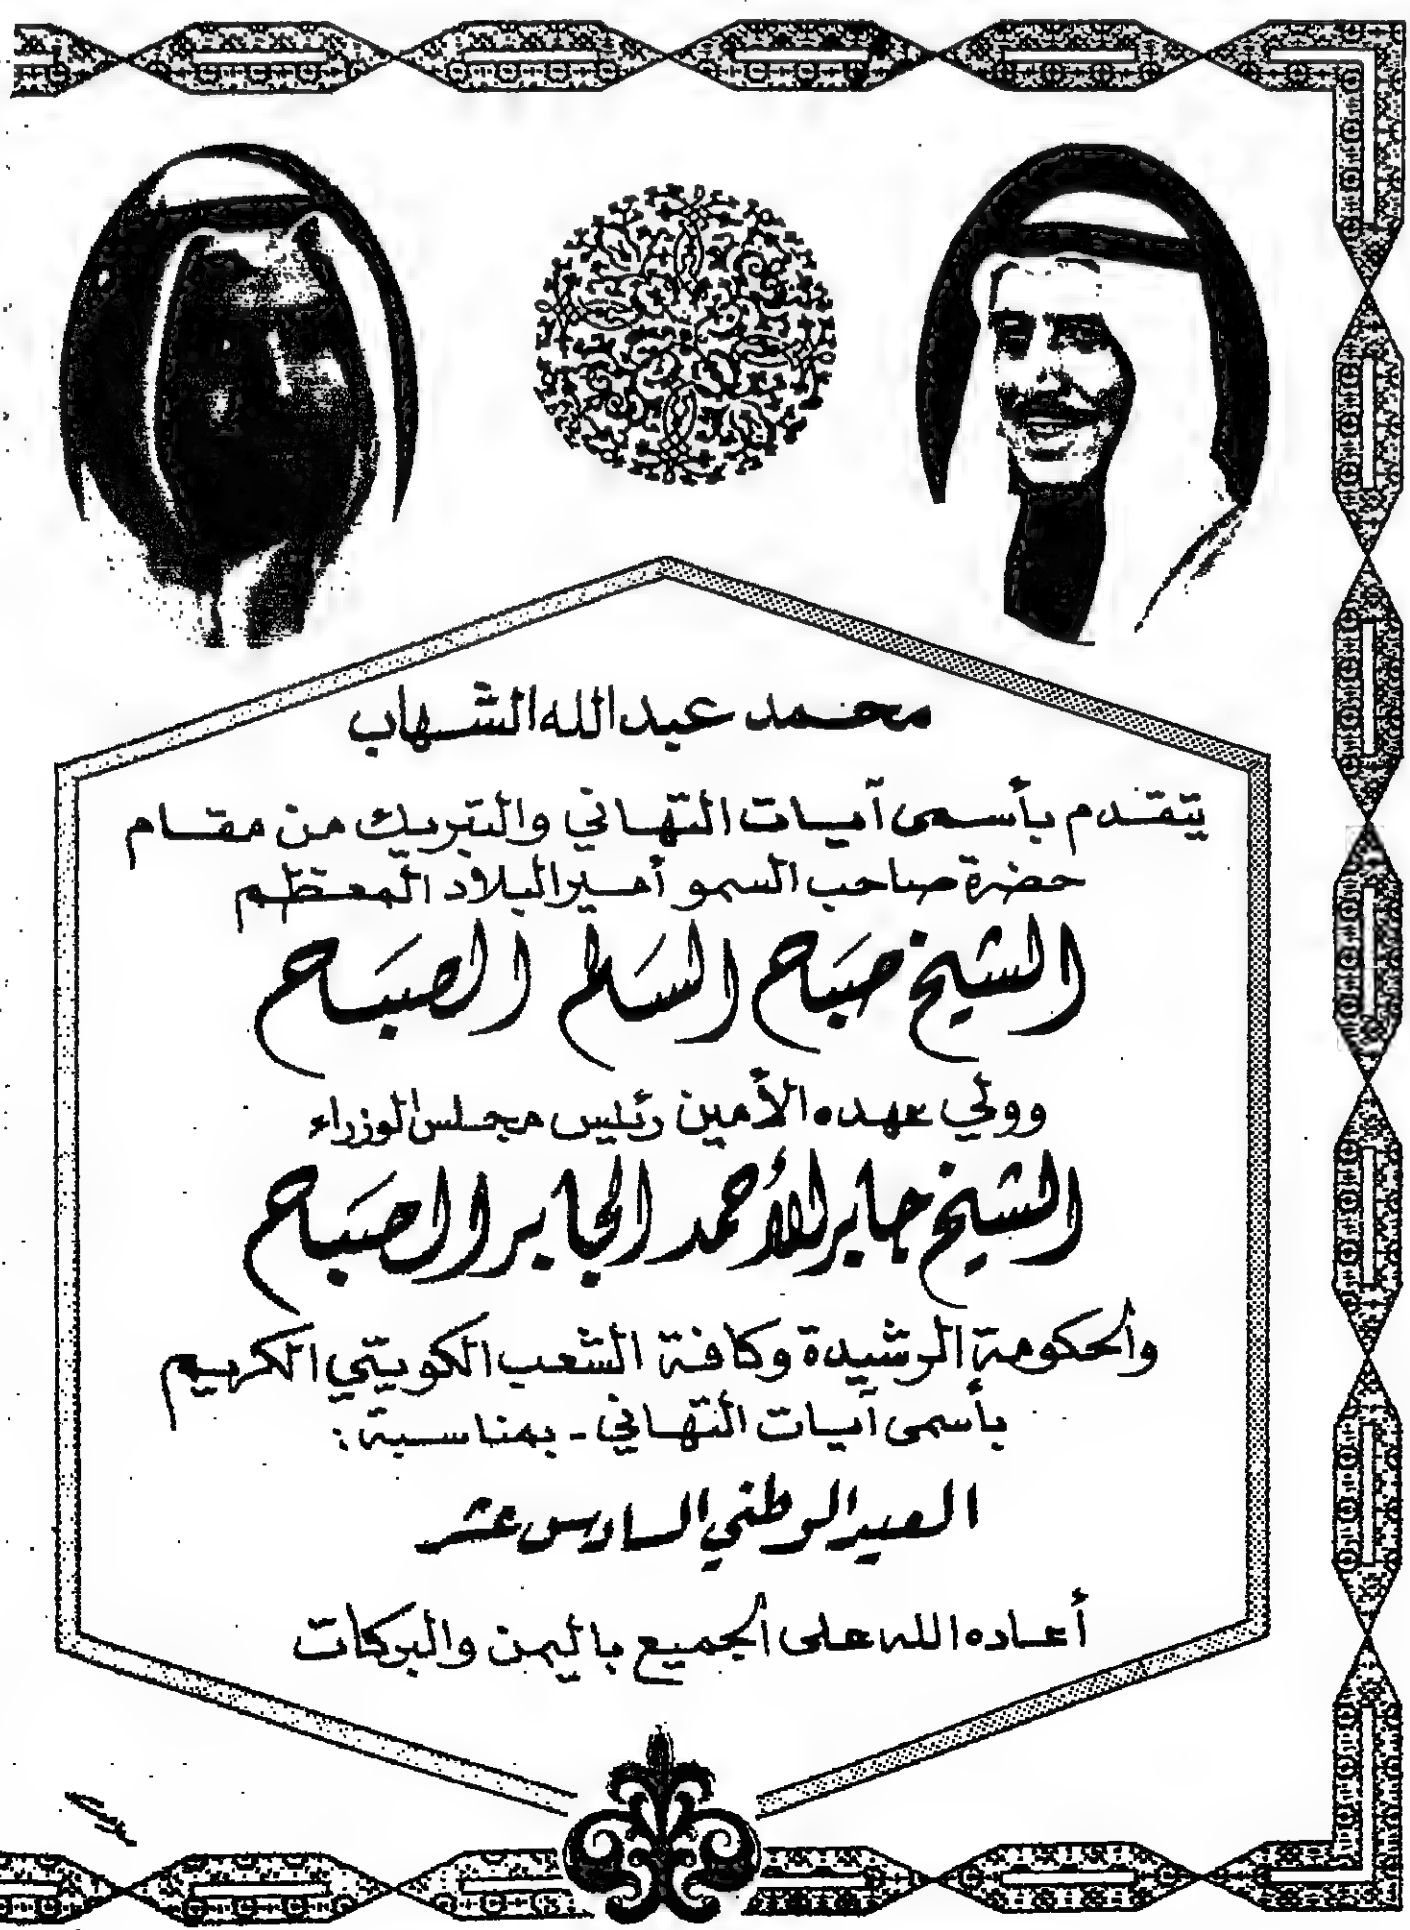 محمد عبدالله الشهاب
يتقدم بأسمى آيات التهاني والتبريك من مقام
حضرة صاحب السمو أمير البلاد المعظم
الشيخ صباح السالم الصباح
وولي عهده الأمين رئيس مجلس الوزراء
الشيخ جابر الأحمد الجابر الصباح
والحكومة الرشيدة وكافة الشعب الكويتي الكريم
بأسمى آيات التهاني - بمناسبة :
العيد الوطني السادس عشر
أعاده الله على الجميع باليمن والبركات